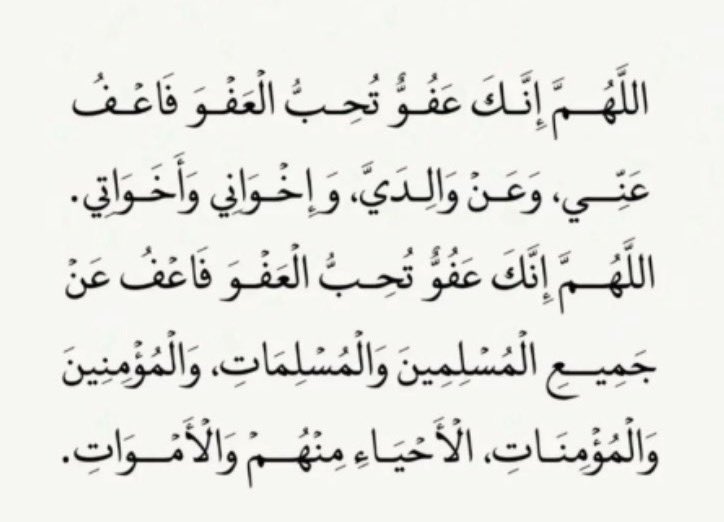 اللَّهُمَّ إِنَّكَ عَفُوٌّ تُحِبُّ الْعَفْوَ فَاعْفُ
عَنِّي، وَعَنْ وَالِدَيَّ، وَإِخْوَانِي وَأَخَوَاتِي.
اللَّهُمَّ إِنَّكَ عَفُوٌّ تُحِبُّ الْعَفْوَ فَاعْفُ عَنْ
جَمِيعِ الْمُسْلِمِينَ وَالْمُسْلِمَاتِ، وَالْمُؤْمِنِينَ
وَالْمُؤْمِنَاتِ، الْأَحْيَاءِ مِنْهُمْ وَالْأَمْوَاتِ.